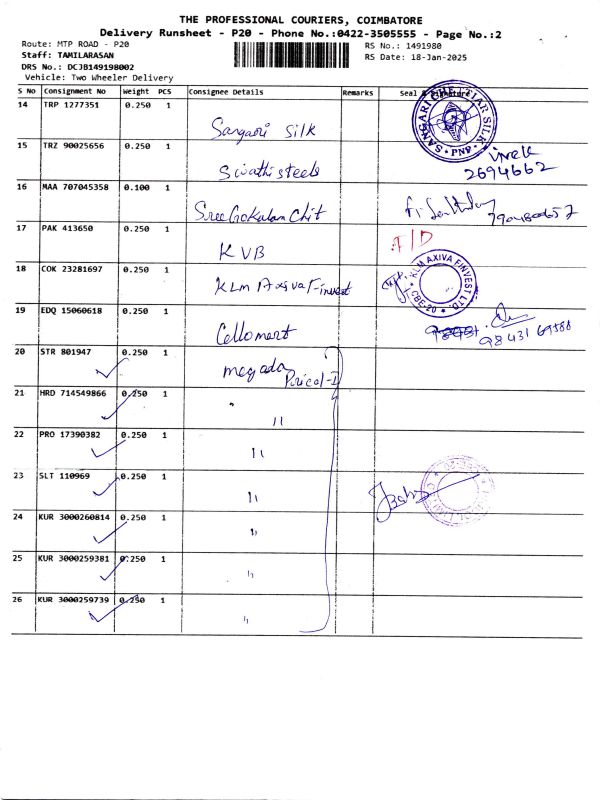 THE PROFESSIONAL COURIERS, COIMBATORE
Delivery Runsheet - P20 - Phone No.:0422-3505555 - Page No.:2
Route: MTP ROAD - P20
RS No.: 1491980
Staff: TAMILARASAN
RS Date: 18-Jan-2025
DRS No.: DCJB149198002
Vehicle: Two Wheeler Delivery
S No Consignment No Weight PCS Consignee Details Remarks Seal
14 TRP 1277351 0.250 1
Sangari Silk
15 TRZ 90025656 0.250 1
Swathi steels
Vivek
2694662
16 MAA 707045358 0.100 1
Sree Gokulam Chit
17 PAK 413650 0.250 1
KVB
F/D
18 COK 23281697 0.250 1
KLM Axiva Finvest
KLM AXIVA FINVEST LTD.
CBE-20
19 EDQ 15060618 0.250 1
Cellomart
98431 69588
20 STR 801947 0.250 1
21 HRD 714549866 0.250 1
11
22 PRO 17390382 0.250 1
11
23 SLT 110969 0.250 1
11
24 KUR 3000260814 0.250 1
11
25 KUR 3000259381 0.250 1
11
26 KUR 3000259739 0.250 1
11